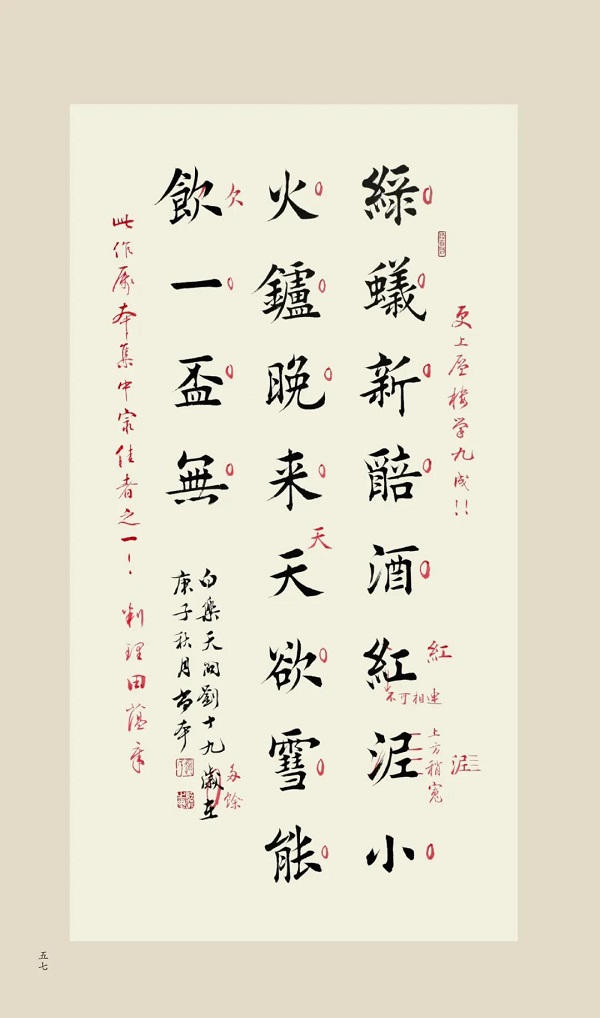 更上层楼学九成!!
綠蟻新醅酒紅泥小
紅
不可相连
泥
上方稍寬
火鑪晚来天欲雪能
天
飲一盃無
欠
白樂天問劉十九 歲在
多餘
庚子秋月
此作屬本集中最佳者之一!
田蕴章
五七